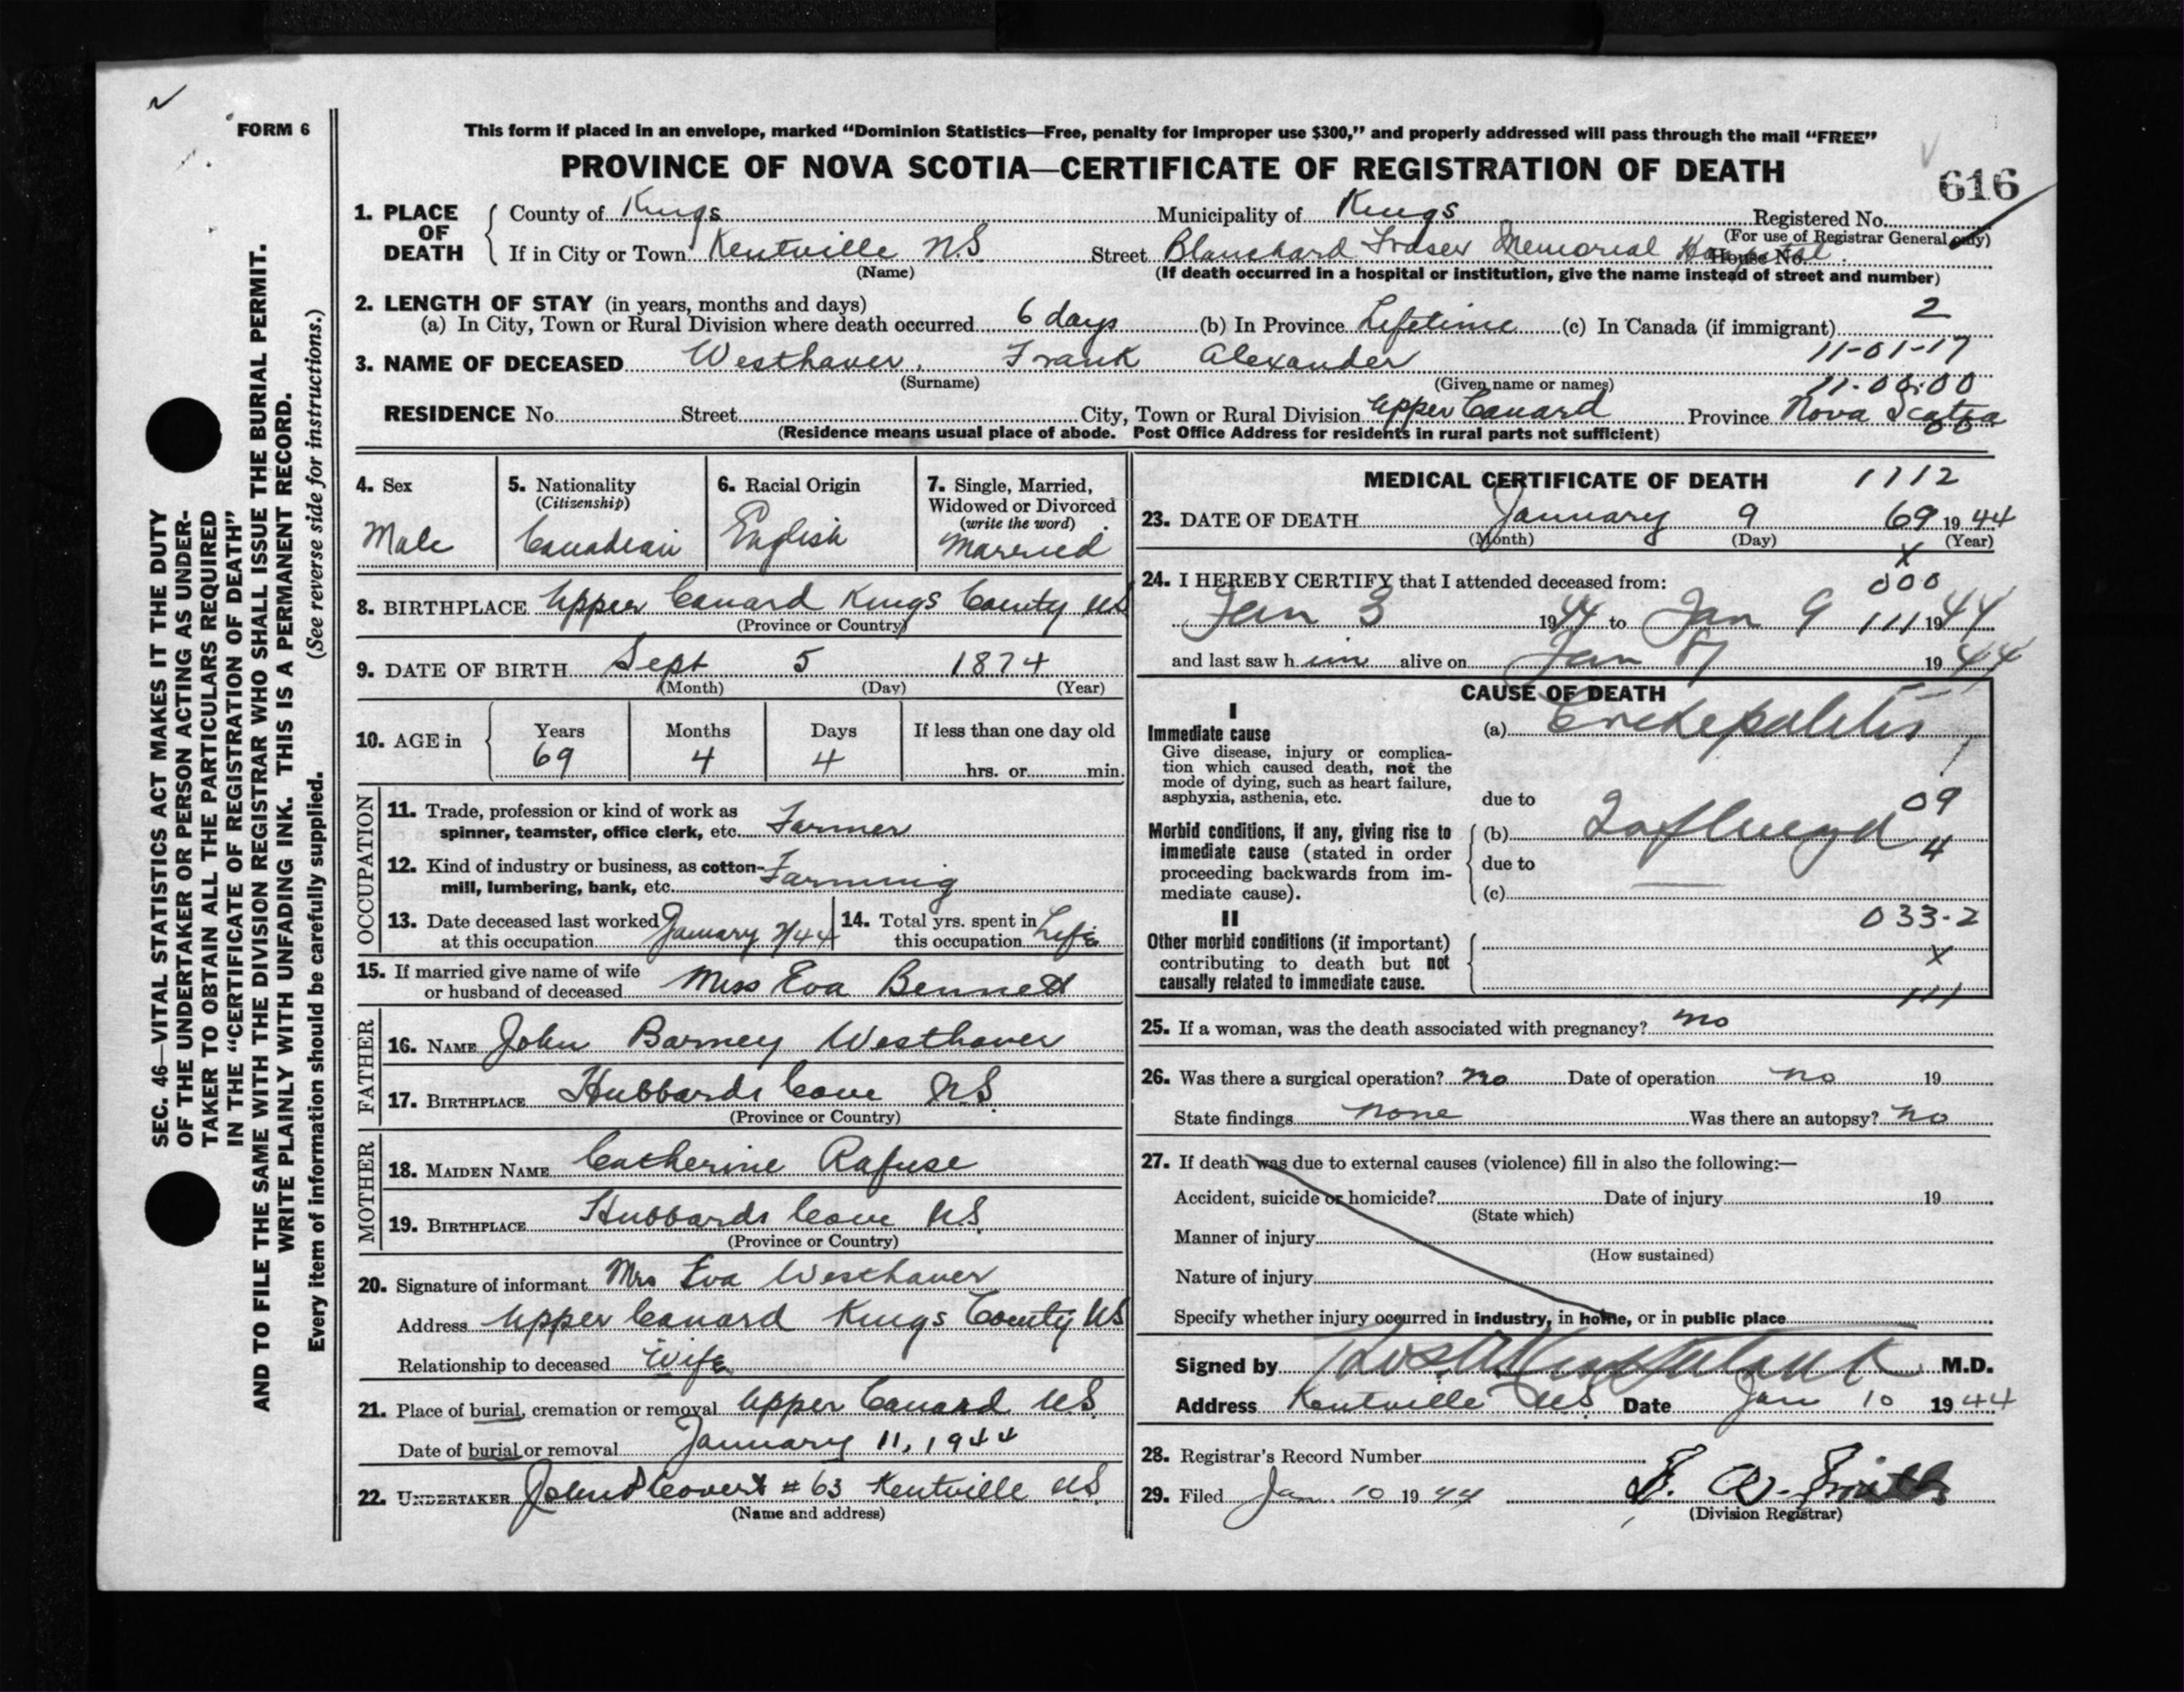 FORM 6
This form if placed in an envelope, marked “Dominion Statistics—Free, penalty for improper use $300,” and properly addressed will pass through the mail “FREE”
PROVINCE OF NOVA SCOTIA—CERTIFICATE OF REGISTRATION OF DEATH
616
1. PLACE OF DEATH
County of Kings Municipality of Kings Registered No.
(For use of Registrar General only)
If in City or Town Kentville N.S. Street Blanchard Fraser Memorial Hospital House No.
(Name) (If death occurred in a hospital or institution, give the name instead of street and number)
2. LENGTH OF STAY (in years, months and days)
(a) In City, Town or Rural Division where death occurred 6 days (b) In Province Lifetime (c) In Canada (if immigrant) 2
11-01-17
3. NAME OF DECEASED Westhaver, Frank Alexander
(Surname) (Given name or names)
RESIDENCE No. Street City, Town or Rural Division Upper Canard Province Nova Scotia
(Residence means usual place of abode. Post Office Address for residents in rural parts not sufficient)
4. Sex Male
5. Nationality (Citizenship) Canadian
6. Racial Origin English
7. Single, Married, Widowed or Divorced (write the word) Married
8. BIRTHPLACE Upper Canard Kings County NS
(Province or Country)
9. DATE OF BIRTH Sept 5 1874
(Month) (Day) (Year)
10. AGE in Years 69 Months 4 Days 4 If less than one day old
hrs. or min.
OCCUPATION
11. Trade, profession or kind of work as
spinner, teamster, office clerk, etc. Farmer
12. Kind of industry or business, as cotton-
mill, lumbering, bank, etc. Farming
13. Date deceased last worked
at this occupation January 2/44
14. Total yrs. spent in
this occupation Life
15. If married give name of wife
or husband of deceased Miss Eva Bennett
FATHER
16. NAME John Barney Westhaver
17. BIRTHPLACE Hubbards Cove N.S.
(Province or Country)
MOTHER
18. MAIDEN NAME Catherine Rafuse
19. BIRTHPLACE Hubbards Cove N.S.
(Province or Country)
20. Signature of informant Mrs Eva Westhaver
Address Upper Canard Kings County NS
Relationship to deceased Wife
21. Place of burial, cremation or removal Upper Canard N.S.
Date of burial or removal January 11, 1944
22. UNDERTAKER Covert # 63 Kentville N.S.
(Name and address)
MEDICAL CERTIFICATE OF DEATH 1112
23. DATE OF DEATH January 9 69 1944
(Month) (Day) (Year)
x
24. I HEREBY CERTIFY that I attended deceased from: 000
Jan 3 1944 to Jan 9 111 1944
and last saw him alive on Jan 1944
CAUSE OF DEATH
I
Immediate cause
Give disease, injury or complica-
tion which caused death, not the
mode of dying, such as heart failure,
asphyxia, asthenia, etc.
(a) Encephalitis
due to 09
Morbid conditions, if any, giving rise to
immediate cause (stated in order
proceeding backwards from im-
mediate cause).
(b) Influenza 4
due to
(c)
II
033-2
Other morbid conditions (if important)
contributing to death but not
causally related to immediate cause.
x
111
25. If a woman, was the death associated with pregnancy? no
26. Was there a surgical operation? no Date of operation no 19
State findings none Was there an autopsy? no
27. If death was due to external causes (violence) fill in also the following:—
Accident, suicide or homicide? Date of injury 19
(State which)
Manner of injury
(How sustained)
Nature of injury
Specify whether injury occurred in industry, in home, or in public place
Signed by M.D.
Address Kentville N.S. Date Jan 10 1944
28. Registrar's Record Number
29. Filed Jan. 10 1944 Smith
(Division Registrar)
SEC. 46—VITAL STATISTICS ACT MAKES IT THE DUTY
OF THE UNDERTAKER OR PERSON ACTING AS UNDER-
TAKER TO OBTAIN ALL THE PARTICULARS REQUIRED
IN THE “CERTIFICATE OF REGISTRATION OF DEATH”
AND TO FILE THE SAME WITH THE DIVISION REGISTRAR WHO SHALL ISSUE THE BURIAL PERMIT.
WRITE PLAINLY WITH UNFADING INK. THIS IS A PERMANENT RECORD.
Every item of information should be carefully supplied. (See reverse side for instructions.)